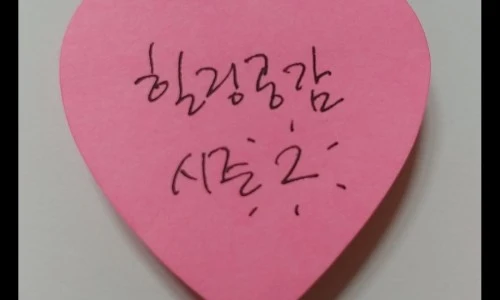 힐링공감
시즌 2